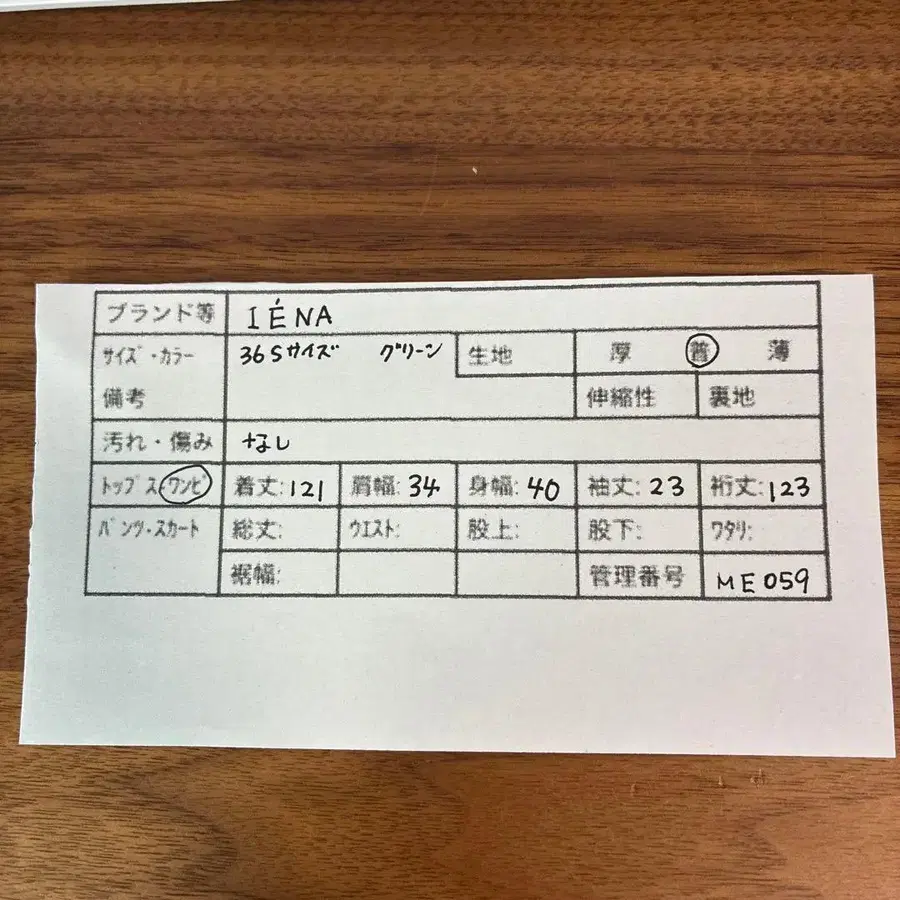 ブランド等 IÉNA
サイズ・カラー 36 Sサイズ グリーン 生地 厚 普 薄
備考 伸縮性 裏地
汚れ・傷み なし
トップス ワンピ 着丈:121 肩幅:34 身幅:40 袖丈:23 裄丈:123
パンツ・スカート 総丈: ウエスト: 股上: 股下: ワタリ:
裾幅: 管理番号 ME059